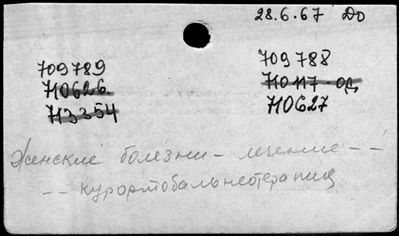 28.6.67 До
709789
709788
710626
710117-од
713354
710627
Женские болезни - лечение --
-- курортобальнеотерапия